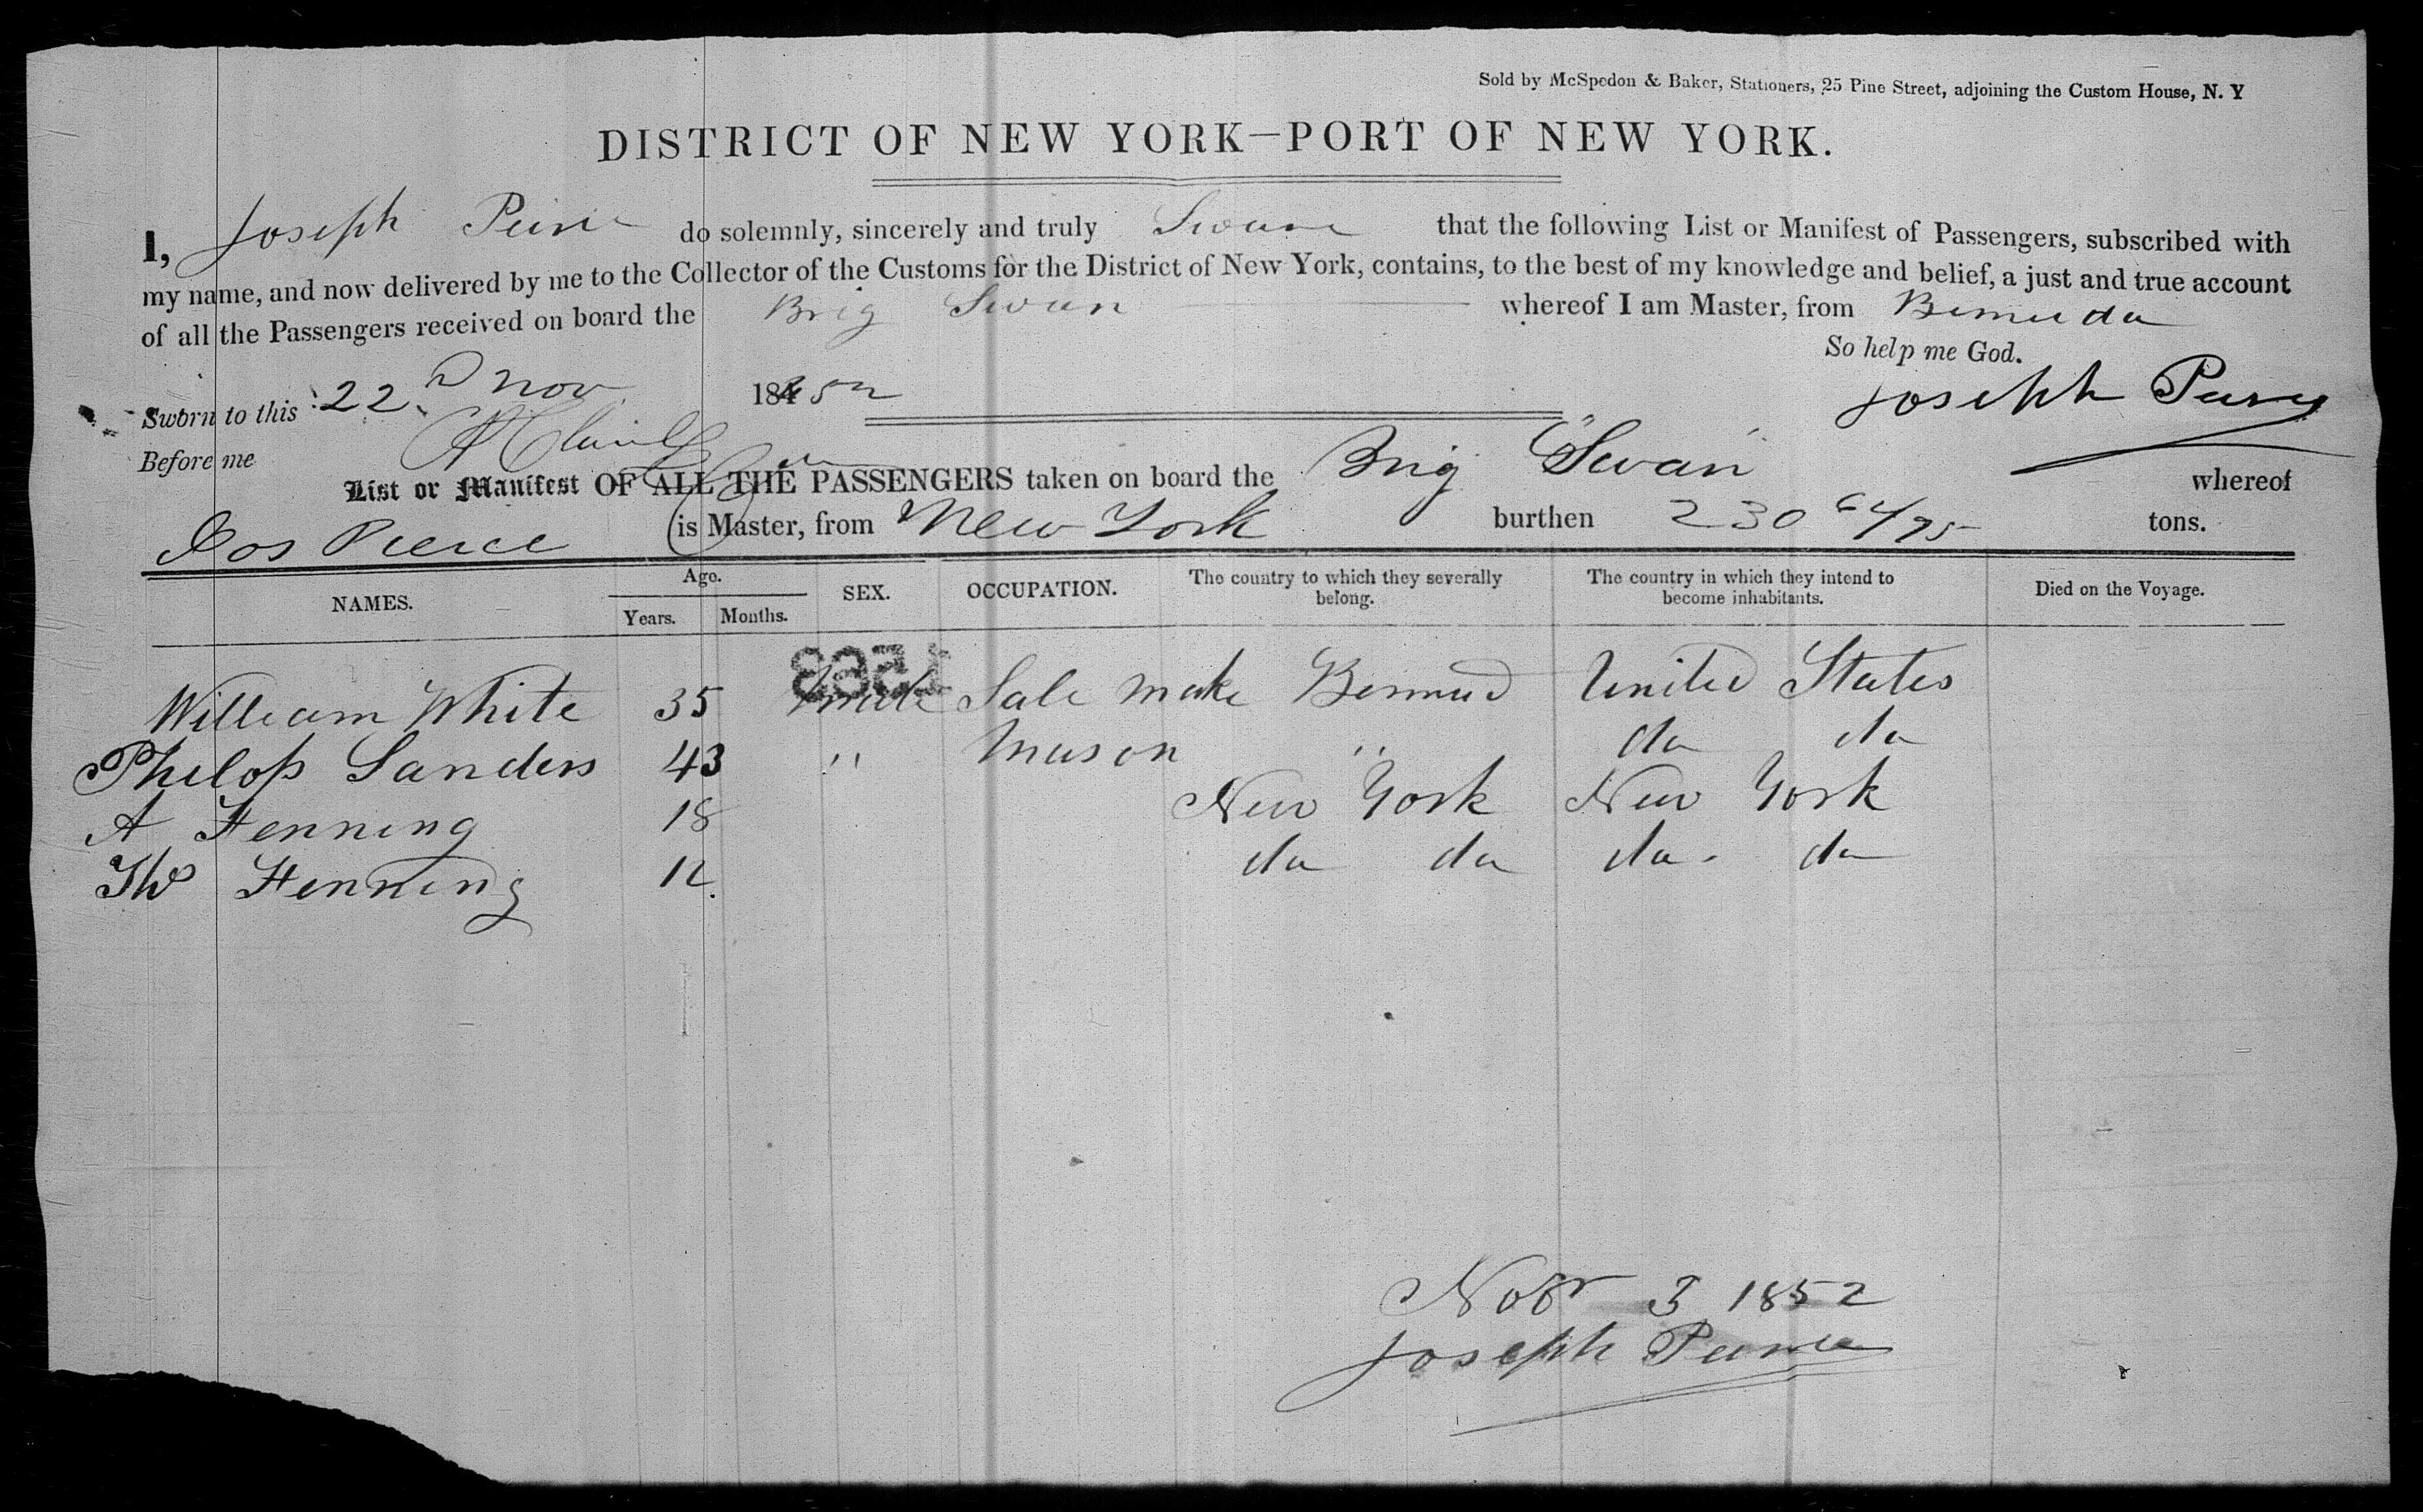 Sold by McSpedon & Baker, Stationers, 25 Pine Street, adjoining the Custom House, N. Y
DISTRICT OF NEW YORK—PORT OF NEW YORK.
I, Joseph do solemnly, sincerely and truly Swear that the following List or Manifest of Passengers, subscribed with
my name, and now delivered by me to the Collector of the Customs for the District of New York, contains, to the best of my knowledge and belief, a just and true account
of all the Passengers received on board the Brig Swan whereof I am Master, from Bermuda
So help me God.
Sworn to this 22d Nov 1852 Joseph
Before me
List or Manifest OF ALL THE PASSENGERS taken on board the Brig "Swan" whereof
Jos Pierce is Master, from New York burthen 230 64/95 tons.
NAMES. Age. Years. Months. SEX. OCCUPATION. The country to which they severally belong. The country in which they intend to become inhabitants. Died on the Voyage.
1553
William White 35 male Sale make Bermud United States
Philop Sanders 43 " Mason " do do
A Henning 18 New York New York
Tho Henning 12. do do do. do
Nobr 3 1852
Joseph